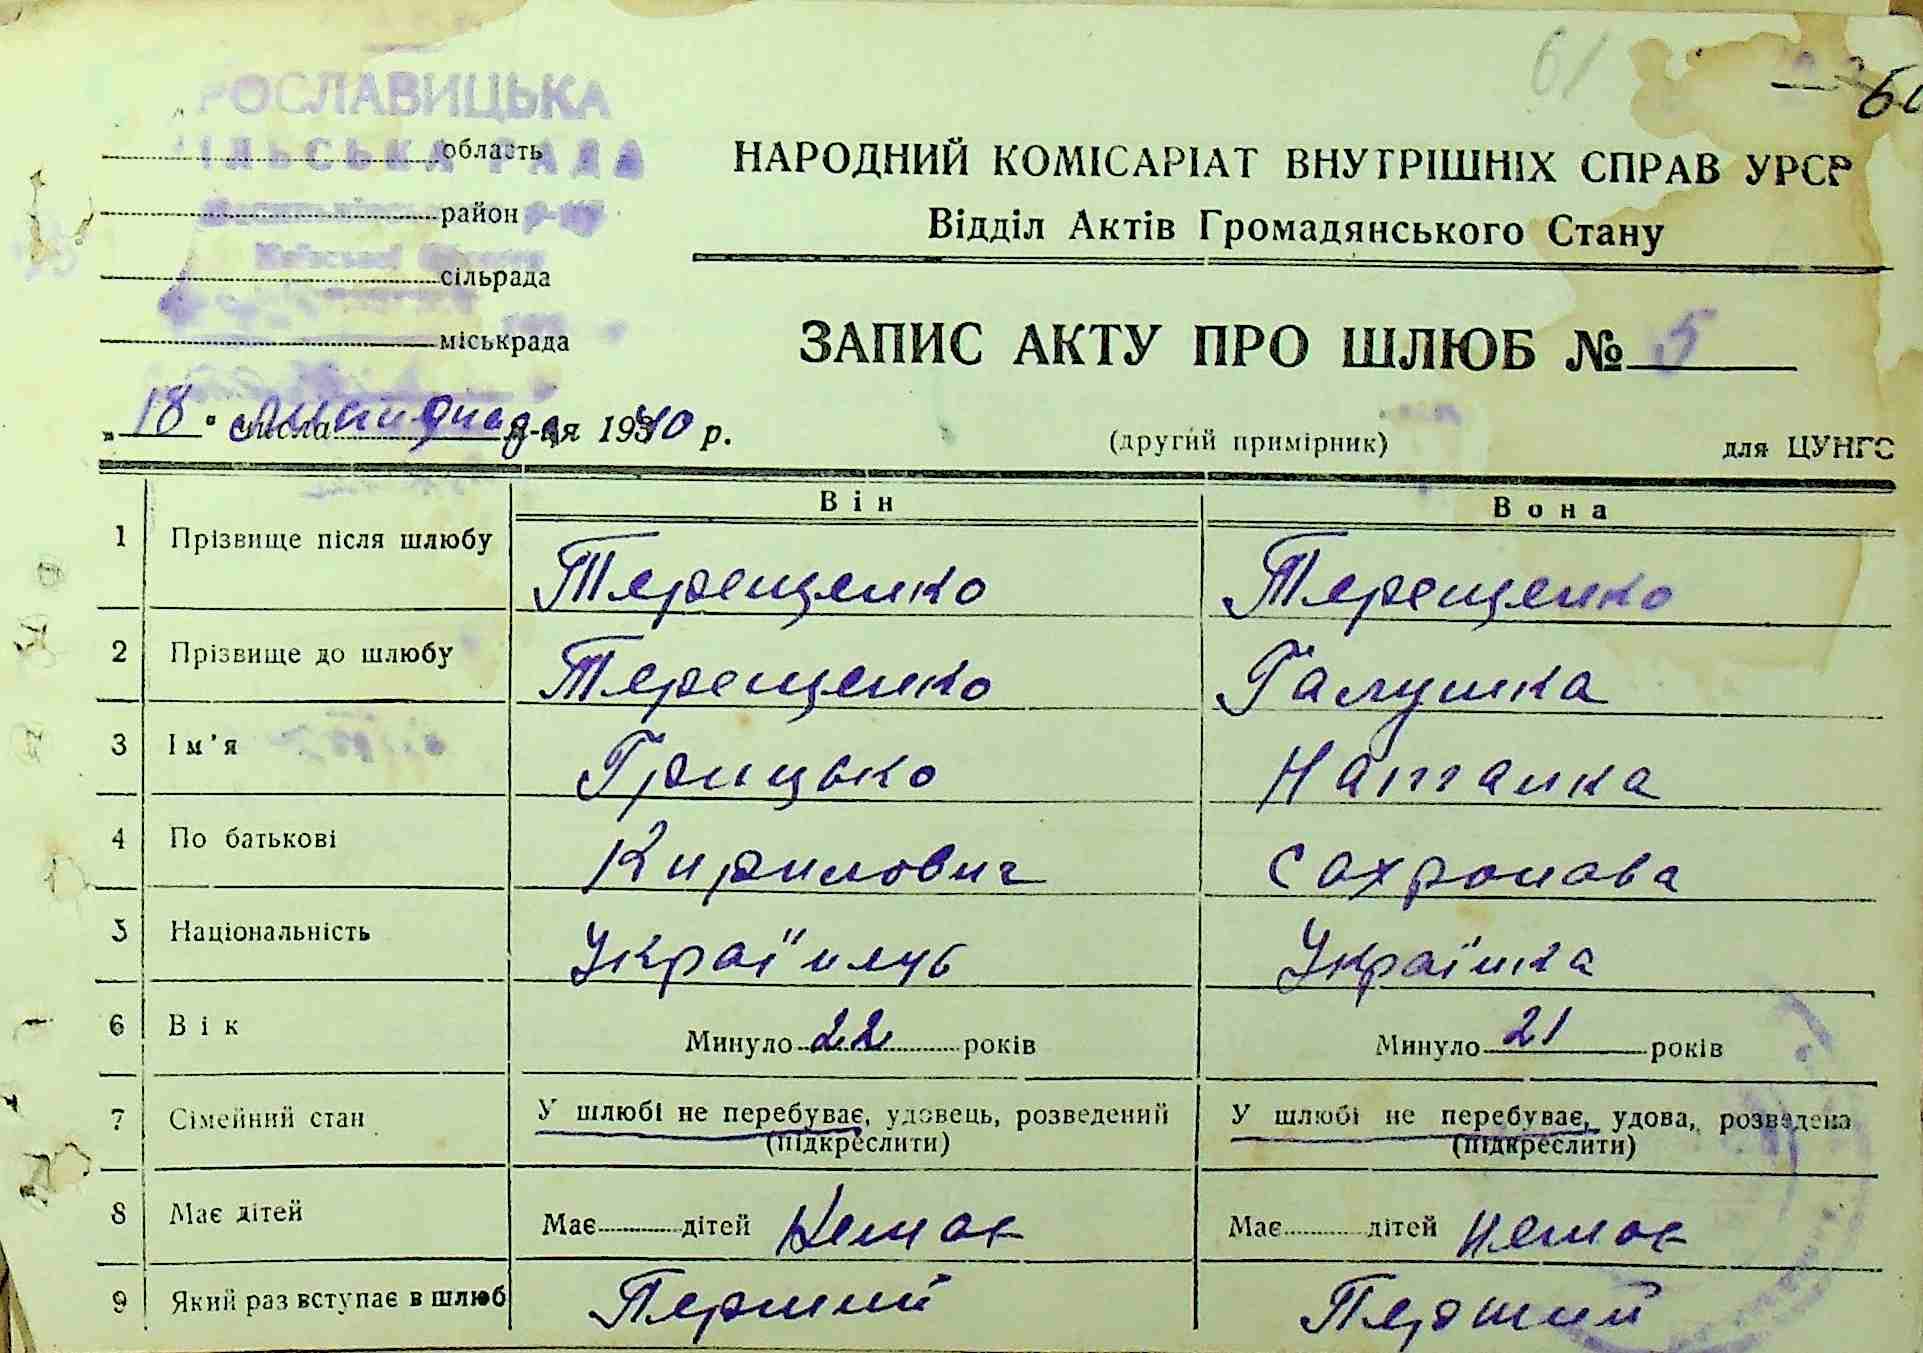 61
60
РОСЛАВИЦЬКА
ІЛЬСЬКА РАДА
область
район р-ну
Київської
сільрада
міськрада
НАРОДНИЙ КОМІСАРІАТ ВНУТРІШНІХ СПРАВ УРСР
Відділ Актів Громадянського Стану
ЗАПИС АКТУ ПРО ШЛЮБ № 5
„ 18 " числа листопада м-ця 1940 р.
(другий примірник) для ЦУНГО
Він Вона
1 Прізвище після шлюбу Терещенко Терещенко
2 Прізвище до шлюбу Терещенко Галушка
3 Ім'я Грицько Наталка
4 По батькові Кирилович Сахронова
5 Національність Українець Українка
6 Вік Минуло 22 років Минуло 21 років
7 Сімейний стан У шлюбі не перебуває, удовець, розведений (підкреслити) У шлюбі не перебуває, удова, розведена (підкреслити)
8 Має дітей Має дітей Немає Має дітей немає
9 Який раз вступає в шлюб Перший Перший